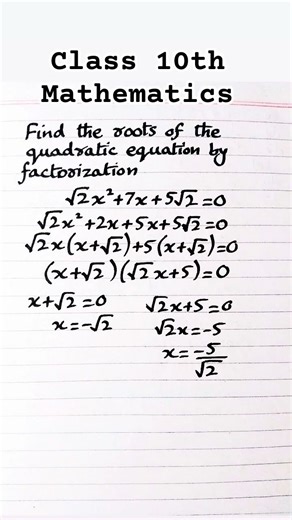 Class 10th
Mathematics
Find the roots of the
quadratic equation by
factorization
√2x²+7x+5√2=0
√2x²+2x+5x+5√2=0
√2x(x+√2)+5(x+√2)=0
(x+√2)(√2x+5)=0
x+√2=0 √2x+5=0
x=-√2 √2x=-5
x=-5/√2